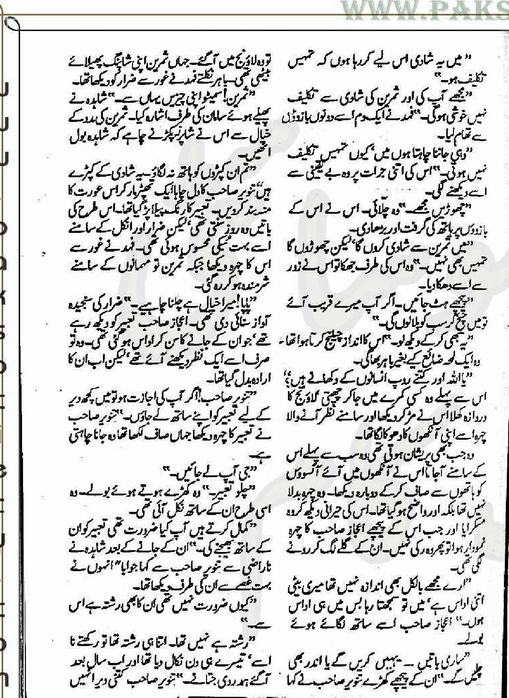 WWW.PAKS
"میں یہ شادی اس لیے کر رہا ہوں کہ تمہیں
تکلیف ہو۔"
"مجھے آپ کی اور ثمرین کی شادی سے تکلیف
نہیں خوشی ہو گی۔" فہد نے ایک دم اسے دونوں بازوؤں
سے تھام لیا۔
"وہی جاننا چاہتا ہوں میں، کیوں تمہیں تکلیف
نہیں ہوتی۔" اس کی اتنی جرات پر وہ بے یقینی سے
اسے دیکھنے لگی۔
"چھوڑیں مجھے۔" وہ چلائی۔ اس نے اس کے
بازوؤں پر ہاتھ کی گرفت اور بڑھا دی۔
"میں ثمرین سے شادی کروں گا، لیکن چھوڑوں گا
تمہیں بھی نہیں۔" وہ اس کی طرف جھکا تو اس نے زور
سے اسے دھکا دیا۔
"پیچھے ہٹ جائیں۔ اگر آپ میرے قریب آئے
تو میں چیخ کر سب کو بلا لوں گی۔"
"یہ بھی کر کے دیکھ لو۔" اس کا انداز چیلنج کرتا ہوا تھا۔
وہ ایک لمحہ ضائع کیے بغیر باہر بھاگی۔
"یا اللہ اور کتنے روپ انسانوں کے دکھانے ہیں؟"
اس سے پہلے وہ کسی کمرے میں جا کر چھپتی لاؤنج کا
دروازہ کھلا اس نے مڑ کر دیکھا اور سامنے نظر آنے والا
چہرہ اسے اپنی آنکھوں کا دھوکا لگا تھا۔
وہ جب بھی پریشان ہوتی تھی وہ سب سے پہلے اس
کے سامنے آ جاتا اس نے آنکھوں میں آئے آنسوؤں
کو ہاتھوں سے صاف کر کے دوبارہ دیکھا۔ وہ چہرہ بدلا
نہیں تھا بلکہ اور واضح ہو گیا تھا۔ اس کی حیرانی دیکھ کر وہ
مسکرایا اور جب اس کے پیچھے اعجاز صاحب کا چہرہ
نمودار ہوا تو پھر وہ رکی نہیں۔ ان کے گلے لگ کر رونے
لگی تھی۔
"ارے مجھے بالکل بھی اندازہ نہیں تھا میری بیٹی
اتنی اداس ہے، میں تو سمجھتا رہا بس میں ہی اداس
ہوں۔" اعجاز صاحب اسے ساتھ لگائے ہوئے
بولے۔
"ساری باتیں۔۔ یہیں کریں گے یا اندر بھی
چلیں گے۔" ان کے پیچھے کھڑے تنویر صاحب نے کہا
تو وہ لاؤنج میں آ گئے۔ جہاں ثمرین اپنی شاپنگ پھیلائے
بیٹھی تھی۔ باہر نکلتے فہد نے غور سے ضرار کو دیکھا تھا۔
"ثمرین! سمیٹو اپنی چیزیں یہاں سے۔" شاہدہ نے
پھیلے ہوئے سامان کی طرف اشارہ کیا۔ ثمرین کی مدد کے
خیال سے اس نے شاپر پکڑنے چاہے کہ شاہدہ بول
اٹھیں۔
"تم ان کپڑوں کو ہاتھ نہ لگاؤ۔ یہ شادی کے کپڑے
ہیں" تنویر صاحب کا دل چاہا ایک تھپڑ مار کر اس عورت کا
منہ بند کر دیں۔ تعبیر کا رنگ پیلا پڑ گیا تھا۔ اس طرح کی
باتیں وہ روز سنتی تھی، لیکن ضرار اور انکل کے سامنے
اسے بہت سبکی محسوس ہوئی تھی۔ فہد نے غور سے
اس کا چہرہ دیکھا جبکہ ثمرین تو مہمانوں کے سامنے
شرمندہ ہو کر رہ گئی۔
"پاپا! میرا خیال ہے چلنا چاہیے۔" ضرار کی سنجیدہ
آواز سنائی دی تھی۔ اعجاز صاحب تعبیر کو دیکھ رہے
تھے، جو ان کے جانے کا سن کر اداس ہو گئی تھی۔ وہ تو
صرف اسے ایک نظر دیکھنے آئے تھے، لیکن اب ان کا
ارادہ بدل گیا تھا۔
"تنویر صاحب! اگر آپ کی اجازت ہو تو میں کچھ دیر
کے لیے تعبیر کو اپنے ساتھ لے جاؤں۔" تنویر صاحب
نے تعبیر کا چہرہ دیکھا جہاں صاف لکھا تھا وہ جانا چاہتی
ہے۔
"جی آپ لے جائیں۔"
"چلو تعبیر۔" وہ کھڑے ہوتے ہوئے بولے۔ وہ
اسی طرح ان کے ساتھ نکل آئی تھی۔
"کمال کرتے ہیں آپ کیا ضرورت تھی تعبیر کو ان
کے ساتھ بھیجنے کی۔" ان کے جانے کے بعد شاہدہ نے
ناراضی سے تنویر صاحب سے کہا جواباً انہوں نے
بہت غصے سے ان کی طرف دیکھا تھا۔
"کیوں ضرورت نہیں تھی ان کا بھی رشتہ ہے اس
سے"
"رشتہ ہے نہیں تھا۔ اتنا ہی رشتہ تھا تو رکھتے نا
اسے، تیسرے ہی دن نکال دیا تھا اور اب سال بعد
آ گئے ہمدردی جتانے۔" تنویر صاحب کتنی دیر انہیں